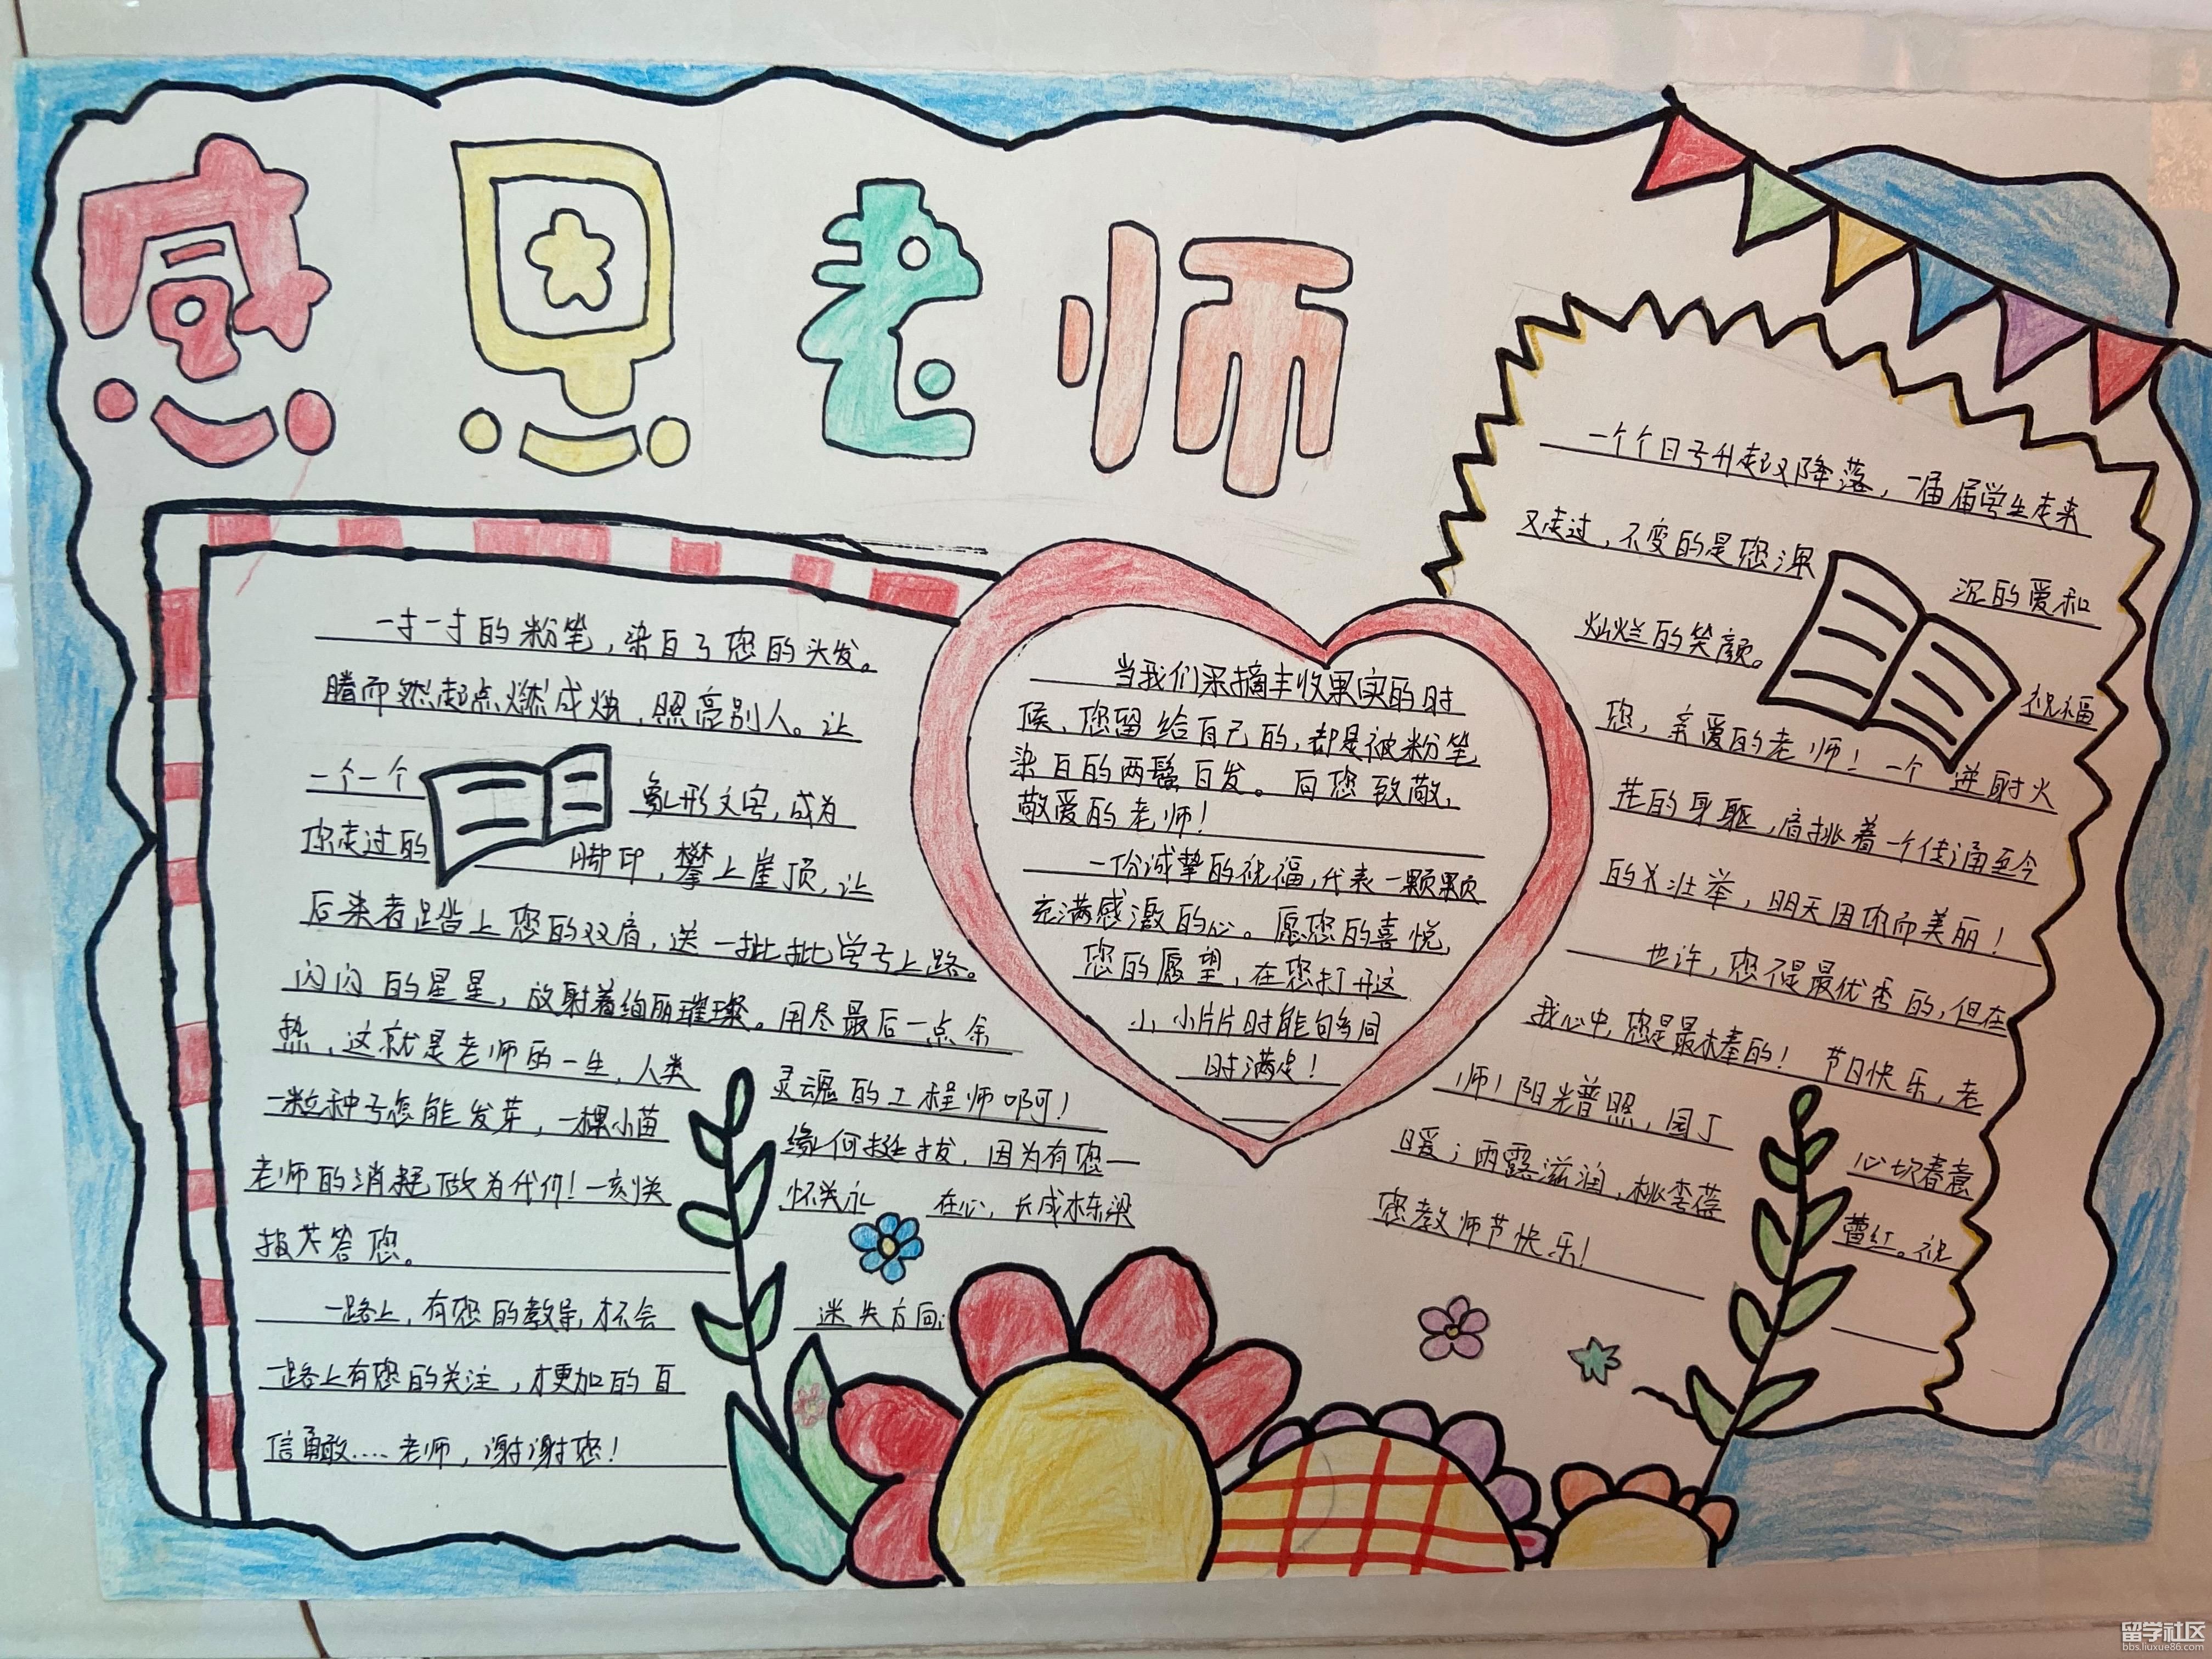 感恩老师
一寸一寸的粉笔，染白了您的头发。
腾而然起点燃成烛，照亮别人。让
一个一个 象形文字，成为
你走过的 脚印，攀上崖顶，让
后来者踏上您的双肩，送一批批学子上路。
闪闪的星星，放射着绚丽璀璨。用尽最后一点余
热，这就是老师的一生，人类 灵魂的工程师啊！
一粒种子怎能发芽，一棵小苗 缘何挺拔，因为有您一
老师的消耗做为代价！一刻 怀 在心，长成栋梁
报答您。
一路上，有您的教导，才不会 迷失方向；
一路上有您的关注，才更加的自
信勇敢....老师，谢谢您！
当我们采摘丰收果实的时
候，您留给自己的，却是被粉笔
染白的两鬓白发。向您致敬，
敬爱的老师！
一份诚挚的祝福，代表一颗颗
充满感激的心。愿您的喜悦，
您的愿望，在您打开这
小小片片时能够同
时满足！
一个个日子升起又降落，一届届学生走来
又走过，不变的是您深 沉的爱和
灿烂的笑颜。 祝福
您，亲爱的老师！一个 迸射火
花的身躯，肩挑着一个传诵至今
的 壮举，明天因你而美丽！
也许，您不是最优秀的，但在
我心中，您是最棒的！节日快乐，老
师！阳光普照，园丁 心切春意
暖；雨露滋润，桃李蓓 蕾红。祝
您教师节快乐！
留学社区
bbs.liuxue86.com